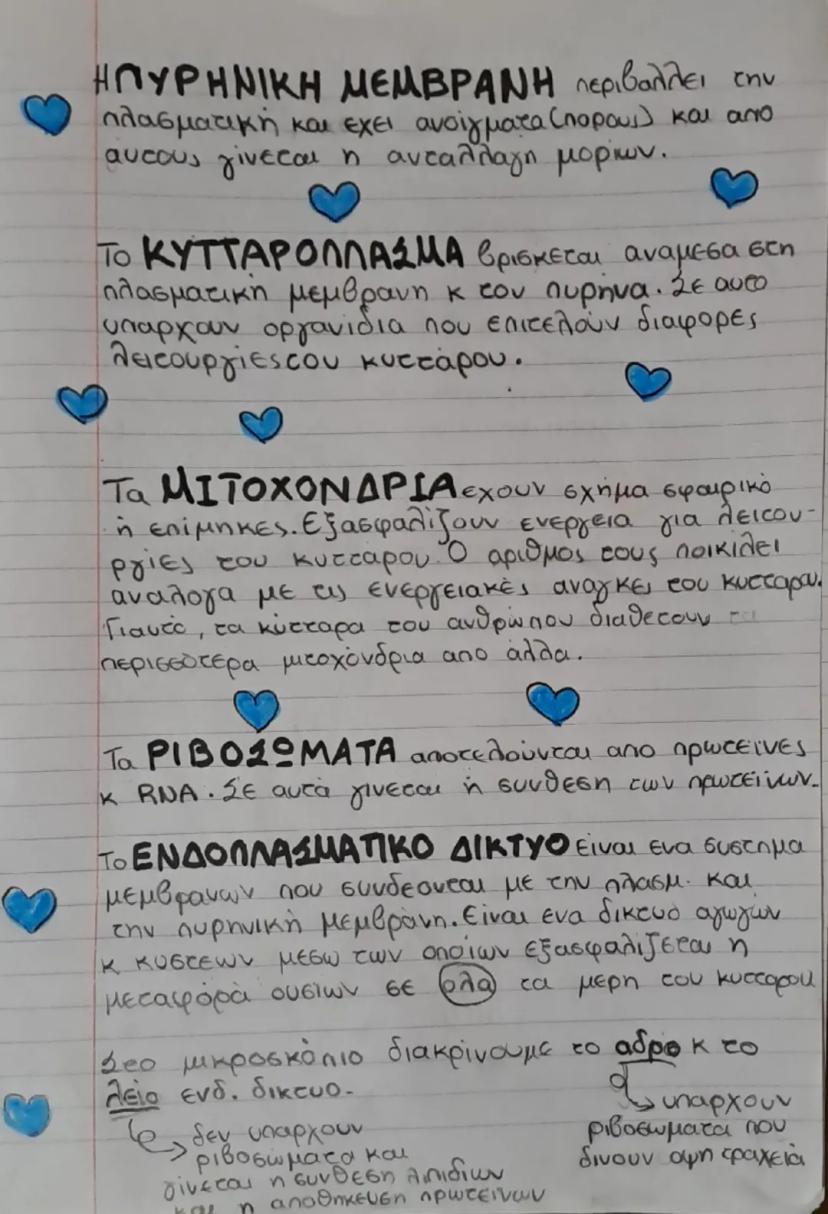 Η ΠΥΡΗΝΙΚΗ ΜΕΜΒΡΑΝΗ περιβαλλει την
πλασματική και εχει ανοίγματα (πορους) και απο
αυτους γίνεται η ανταλλαγη μορίων.
Το ΚΥΤΤΑΡΟΠΛΑΣΜΑ βρισκεται αναμεσα στη
πλασματική μεμβρανη κ τον πυρήνα. Σε αυτο
υπαρχουν οργανιδια που επιτελούν διαφορες
λειτουργίες του κυττάρου.
Τα ΜΙΤΟΧΟΝΔΡΙΑ εχουν σχήμα σφαιρικό
ή επίμηκες. Εξασφαλίζουν ενεργεια για λειτου-
ργίες του κυτταρου. Ο αριθμος τους ποικιλει
αναλογα με τις ενεργειακές αναγκες του κυτταρου.
Γιαυτό, τα κύτταρα του ανθρώπου διαθετουν
περισσότερα μιτοχόνδρια απο άλλα.
Τα ΡΙΒΟΣΩΜΑΤΑ αποτελούνται απο πρωτεϊνες
κ RNA. Σε αυτά γινεται ή συνθεση των πρωτεϊνων.
Το ΕΝΔΟΠΛΑΣΜΑΤΙΚΟ ΔΙΚΤΥΟ είναι ενα συστημα
μεμβρανων που συνδεονται με την πλασμ. και
την πυρηνική μεμβράνη. Είναι ενα δικτυο αγωγών
κ κυστεων μεσω των οποίων εξασφαλιζεται η
μεταφόρά ουσιων σε ολα τα μερη του κυτταρου
Στο μικροσκόπιο διακρίνουμε το αδρο κ το
λείο ενδ. δικτυο.
υπαρχουν
ριβοσωματα που
δινουν οψη τραχειά
δεν υπαρχουν
ριβοσωματα και
γίνεται η συνθεση λιπιδίων
και η αποθηκευση πρωτεινων